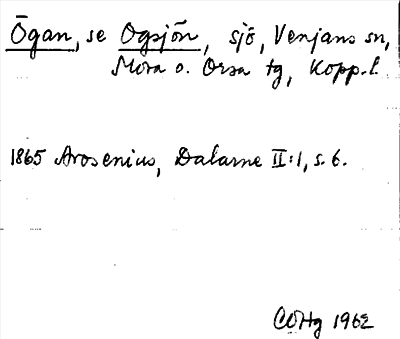 Ōgan, se Ogsjön, sjö, Venjans sn,
Mora o. Orsa tg, Kopp. l.
1865 Arosenius, Dalarne II:1, s. 6.
COHg 1962